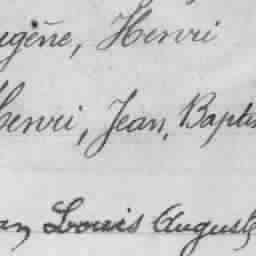 ugène, Henri
Henri, Jean, Baptis
an, Louis Auguste